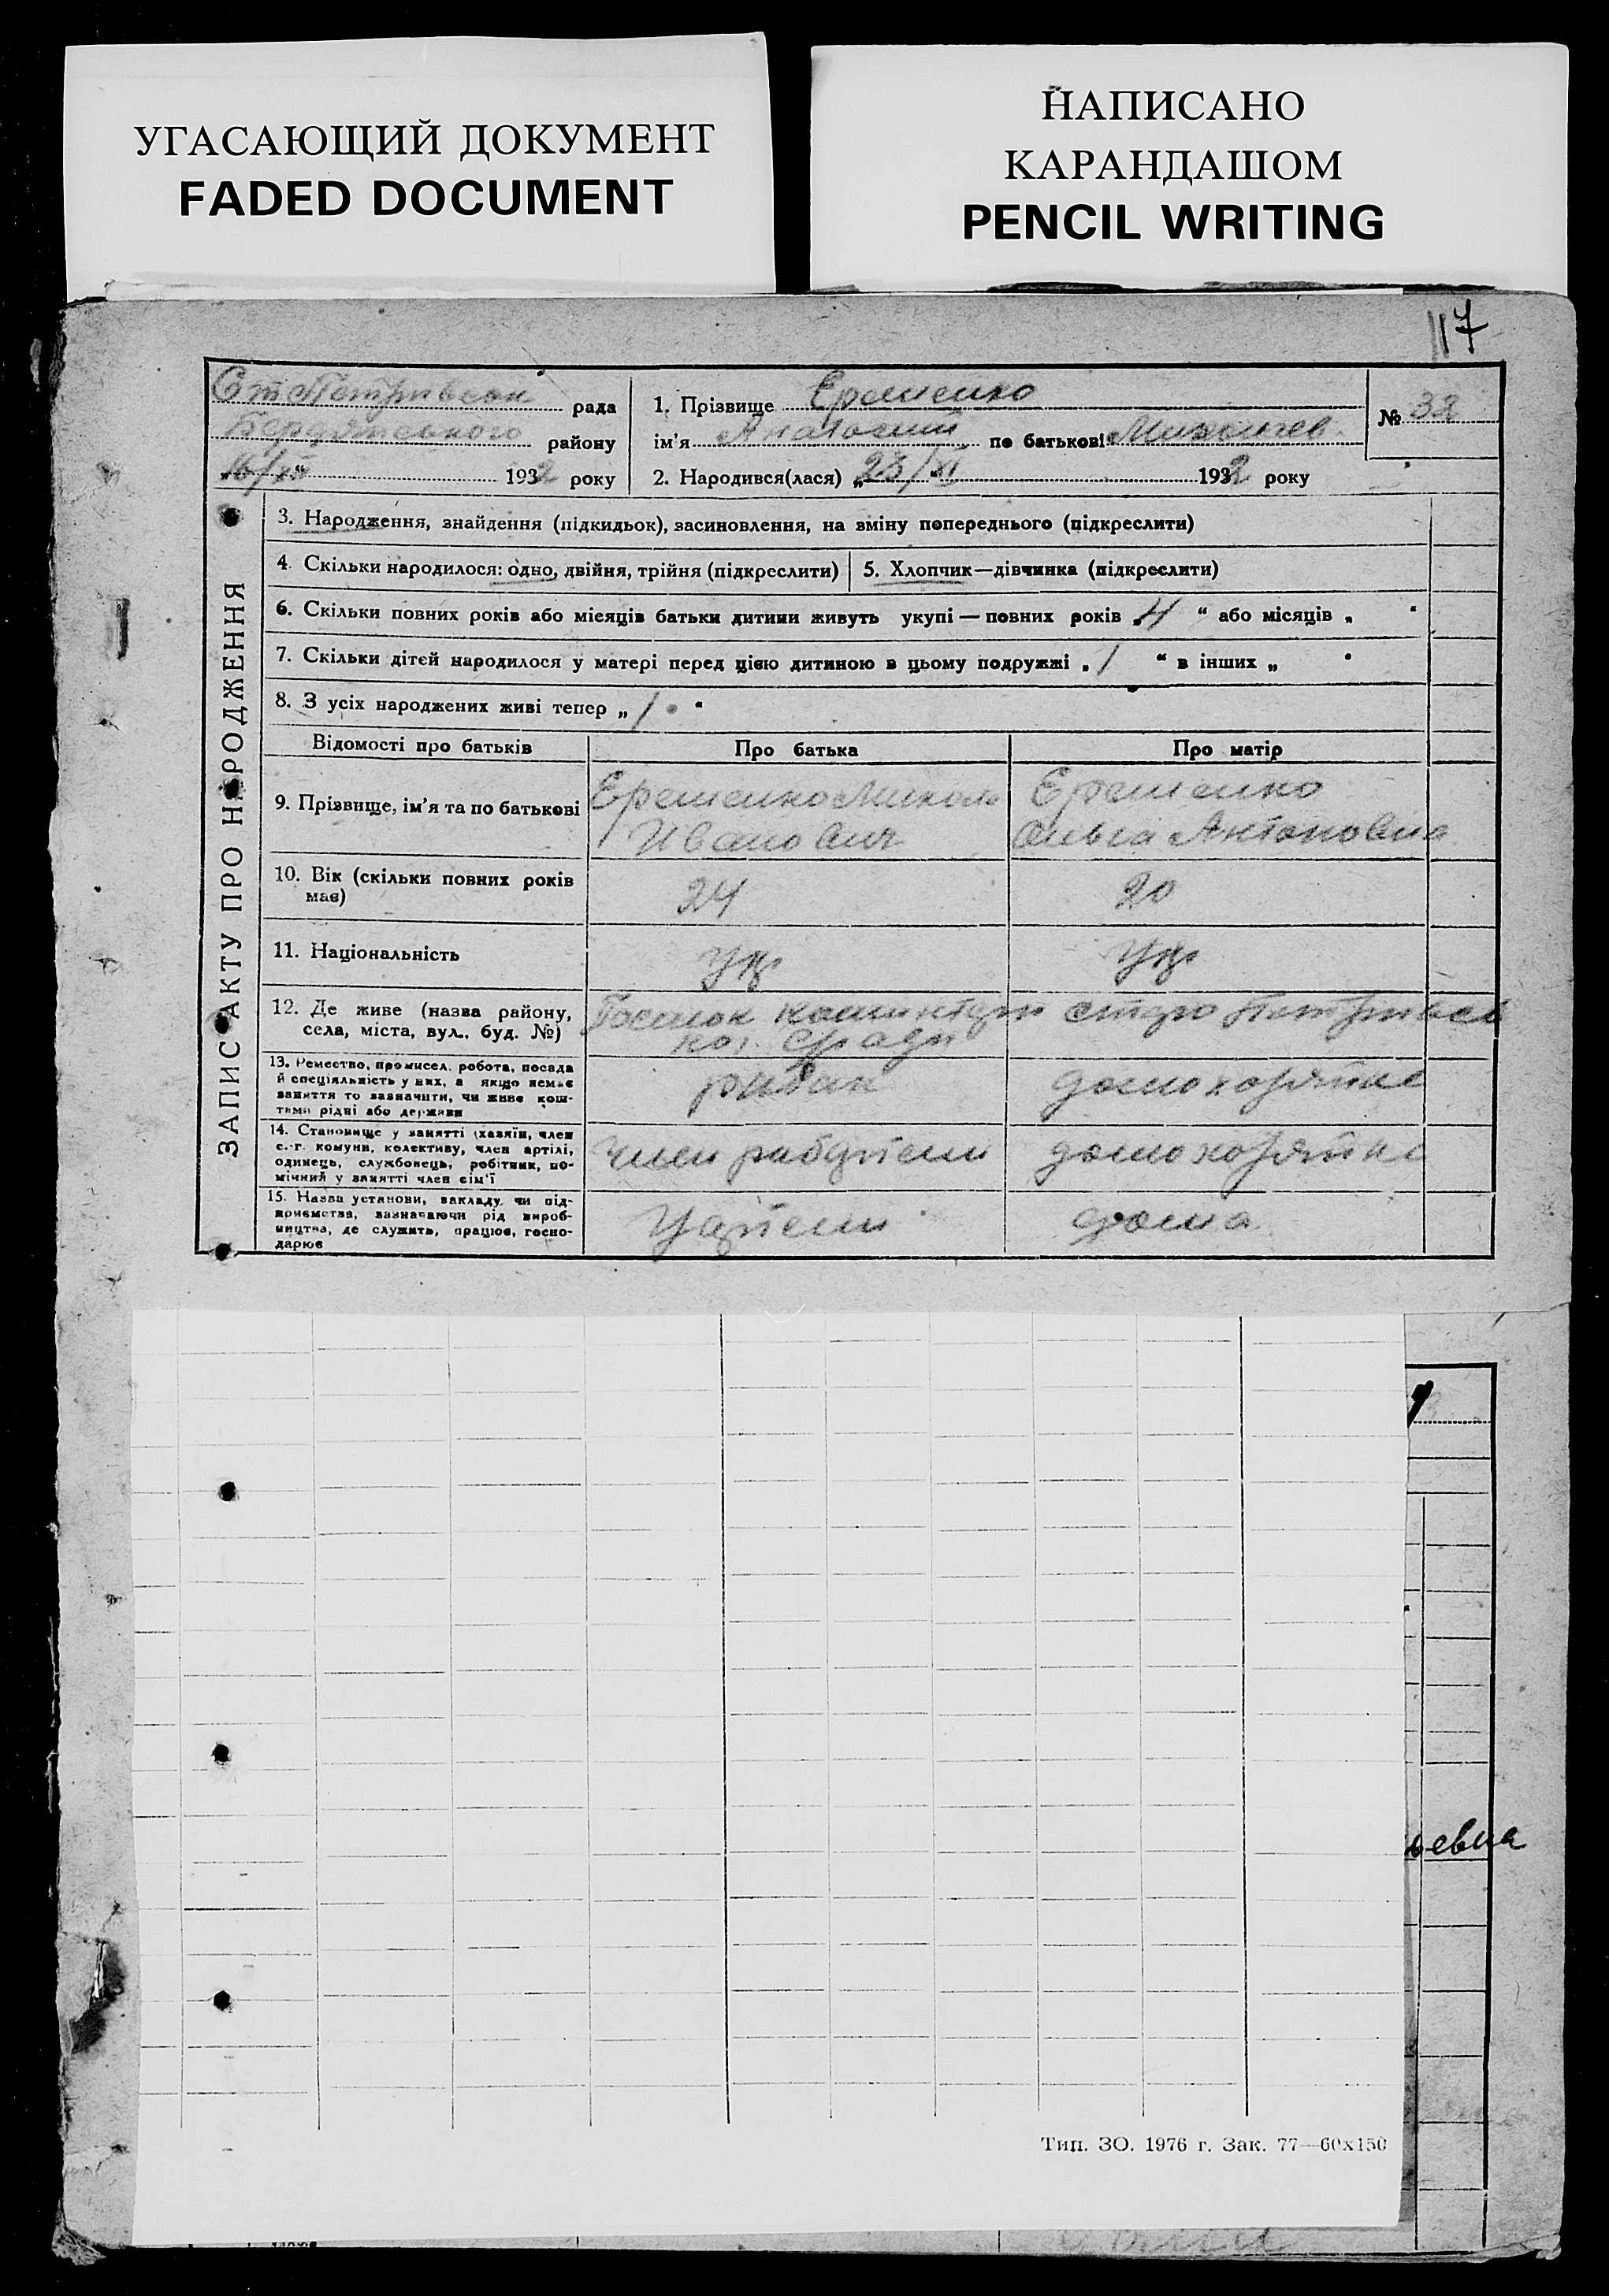 УГАСАЮЩИЙ ДОКУМЕНТ
FADED DOCUMENT
НАПИСАНО
КАРАНДАШОМ
PENCIL WRITING
117
рада
Бердянського району
16/XII 1932 року
1. Прізвище Еременко
ім'я Анатолий по батькові
2. Народився(лася) „23/XI 1932 року
№ 32
ЗАПИС АКТУ ПРО НАРОДЖЕННЯ
3. Народження, знайдення (підкидьок), засиновлення, на зміну попереднього (підкреслити)
4. Скільки народилося: одно, двійня, трійня (підкреслити)
5. Хлопчик—дівчинка (підкреслити)
6. Скільки повних років або місяців батьки дитини живуть укупі — повних років „4 “ або місяців „ “
7. Скільки дітей народилося у матері перед цією дитиною в цьому подружжі „ 1 “ в інших „ “
8. З усіх народжених живі тепер „ 1 “
Відомості про батьків
Про батька
Про матір
9. Прізвище, ім'я та по батькові
Еременко Микола
Иванович
Еременко
Ольга Антоновна
10. Вік (скільки повних років
має)
24
20
11. Національність
Укр
Укр
12. Де живе (назва району,
села, міста, вул., буд. №)
13. Ремество, промисел, робота, посада
й спеціяльність у них, а якщо немає
заняття то зазначити, чи живе кош-
тами рідні або держави
рибак
домохозяйка
14. Становище у занятті (хазяїн, член
с.-г. комуни, колективу, член артілі,
одинець, службовець, робітник, по-
мічний у занятті член сім'ї
член
домохозяйка
15. Назва установи, закладу чи під-
приємства, зазначаючи рід вироб-
ництва, де служить, працює, госпо-
дарює
дома
ьевна
Тип. ЗО. 1976 г. Зак. 77—60х150